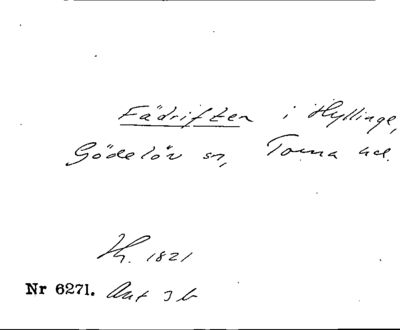 Fädriften i Hyllinge,
Gödelöv sn, Torna hd.
Hh. 1821
Nr 6271. Ant 3 b